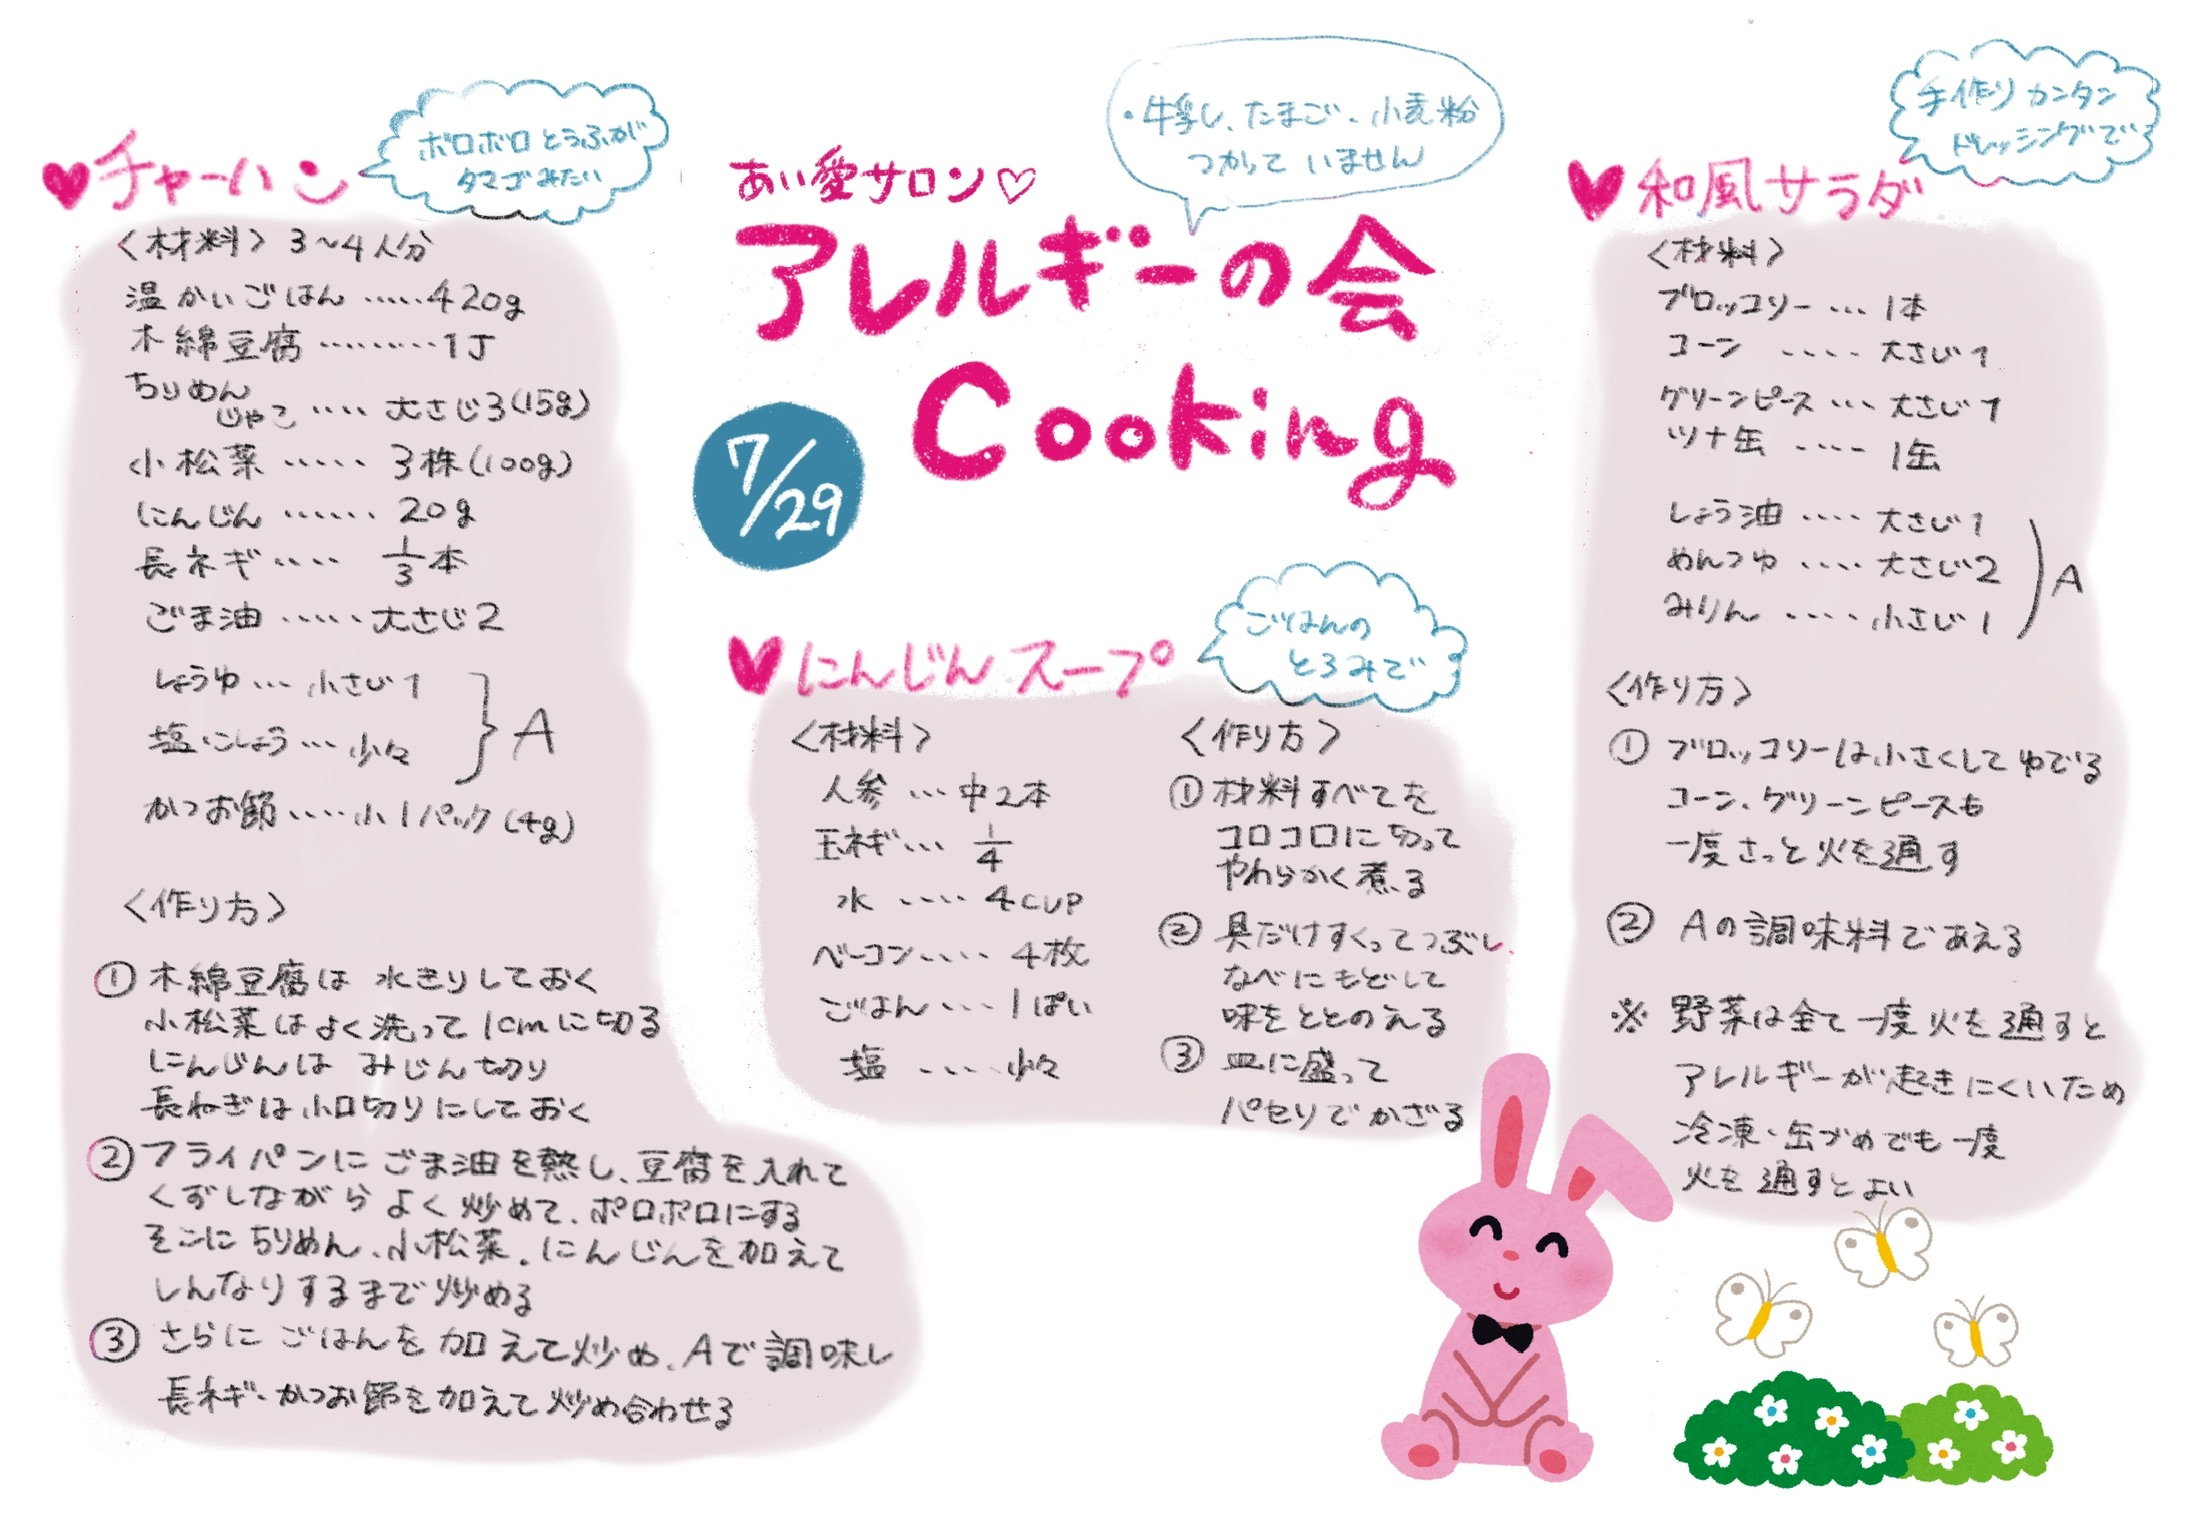 あい愛サロン♡
アレルギーの会
Cooking
7/29
・牛乳し、たまご、小麦粉
つかって いません
♥チャーハン
ボロボロとうふが
タマゴみたい
〈材料〉3〜4人分
温かいごはん ‥‥‥420g
木綿豆腐 ‥‥‥‥1丁
ちりめん
じゃこ ‥‥ 大さじ3(15g)
小松菜 ‥‥‥ 3株(100g)
にんじん ‥‥‥ 20g
長ネギ ‥‥ 1/3本
ごま油 ‥‥‥大さじ2
しょうゆ … 小さじ1
塩・こしょう … 少々
} A
かつお節 ‥‥小1パック(4g)
〈作り方〉
① 木綿豆腐は 水きりしておく
小松菜はよく洗って1cmに切る
にんじんは みじん切り
長ねぎは小口切りにしておく
② フライパンに ごま油を熱し、豆腐を入れて
くずしながら よく炒めて、ポロポロにする
そこに ちりめん、小松菜、にんじんを加えて
しんなりするまで炒める
③ さらに ごはんを加えて炒め、Aで調味し
長ネギ・かつお節を加えて炒め合わせる
♥にんじんスープ
ごはんの
とろみで
〈材料〉
人参 … 中2本
玉ネギ… 1/4
水 ‥‥ 4cup
ベーコン‥‥ 4枚
ごはん … 1ぱい
塩 ‥‥ 少々
〈作り方〉
① 材料すべてを
コロコロに切って
やわらかく煮る
② 具だけすくってつぶし、
なべにもどして
味をととのえる
③ 皿に盛って
パセリでかざる
♥和風サラダ
手作りカンタン
ドレッシングで
〈材料〉
ブロッコリー … 1本
コーン ‥‥ 大さじ1
グリーンピース … 大さじ1
ツナ缶 ‥‥ 1缶
しょう油 ‥‥ 大さじ1
めんつゆ ‥‥ 大さじ2
みりん ‥‥ 小さじ1
) A
〈作り方〉
① ブロッコリーは小さくしてゆでる
コーン、グリーンピースも
一度さっと火を通す
② Aの調味料であえる
※ 野菜は全て一度火を通すと
アレルギーが起きにくいため
冷凍・缶づめでも一度
火を通すとよい